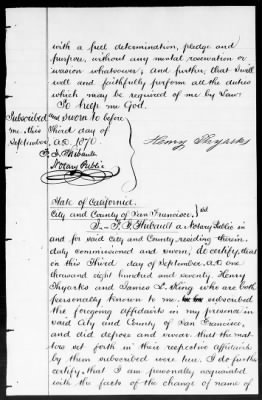 with a full determination, pledge and
purpose, without any mental reservation or
evasion whatsoever, and further, that I will
well and faithfully perform all the duties
which may be required of me by Law.
So help me God.
Subscribed and sworn to before
me, this Third day of
September, A.D. 1870.
F. J. Thibault
Notary Public
Henry
State of California.
City and County of San Francisco. } ss
I, F. J. Thibault a Notary Public in
and for said City and County, residing therein,
duly commissioned and sworn, do certify, that
on this Third day of September, A.D. one
thousand eight hundred and seventy, Henry
and James L. King who are both
personally known to me, subscribed
the foregoing affidavits in my presence in
said City and County of San Francisco,
and did depose and swear that the mat-
ters set forth in their respective affidavits
by them subscribed were true. I do further
certify, that I am personally acquainted
with the facts of the change of name of